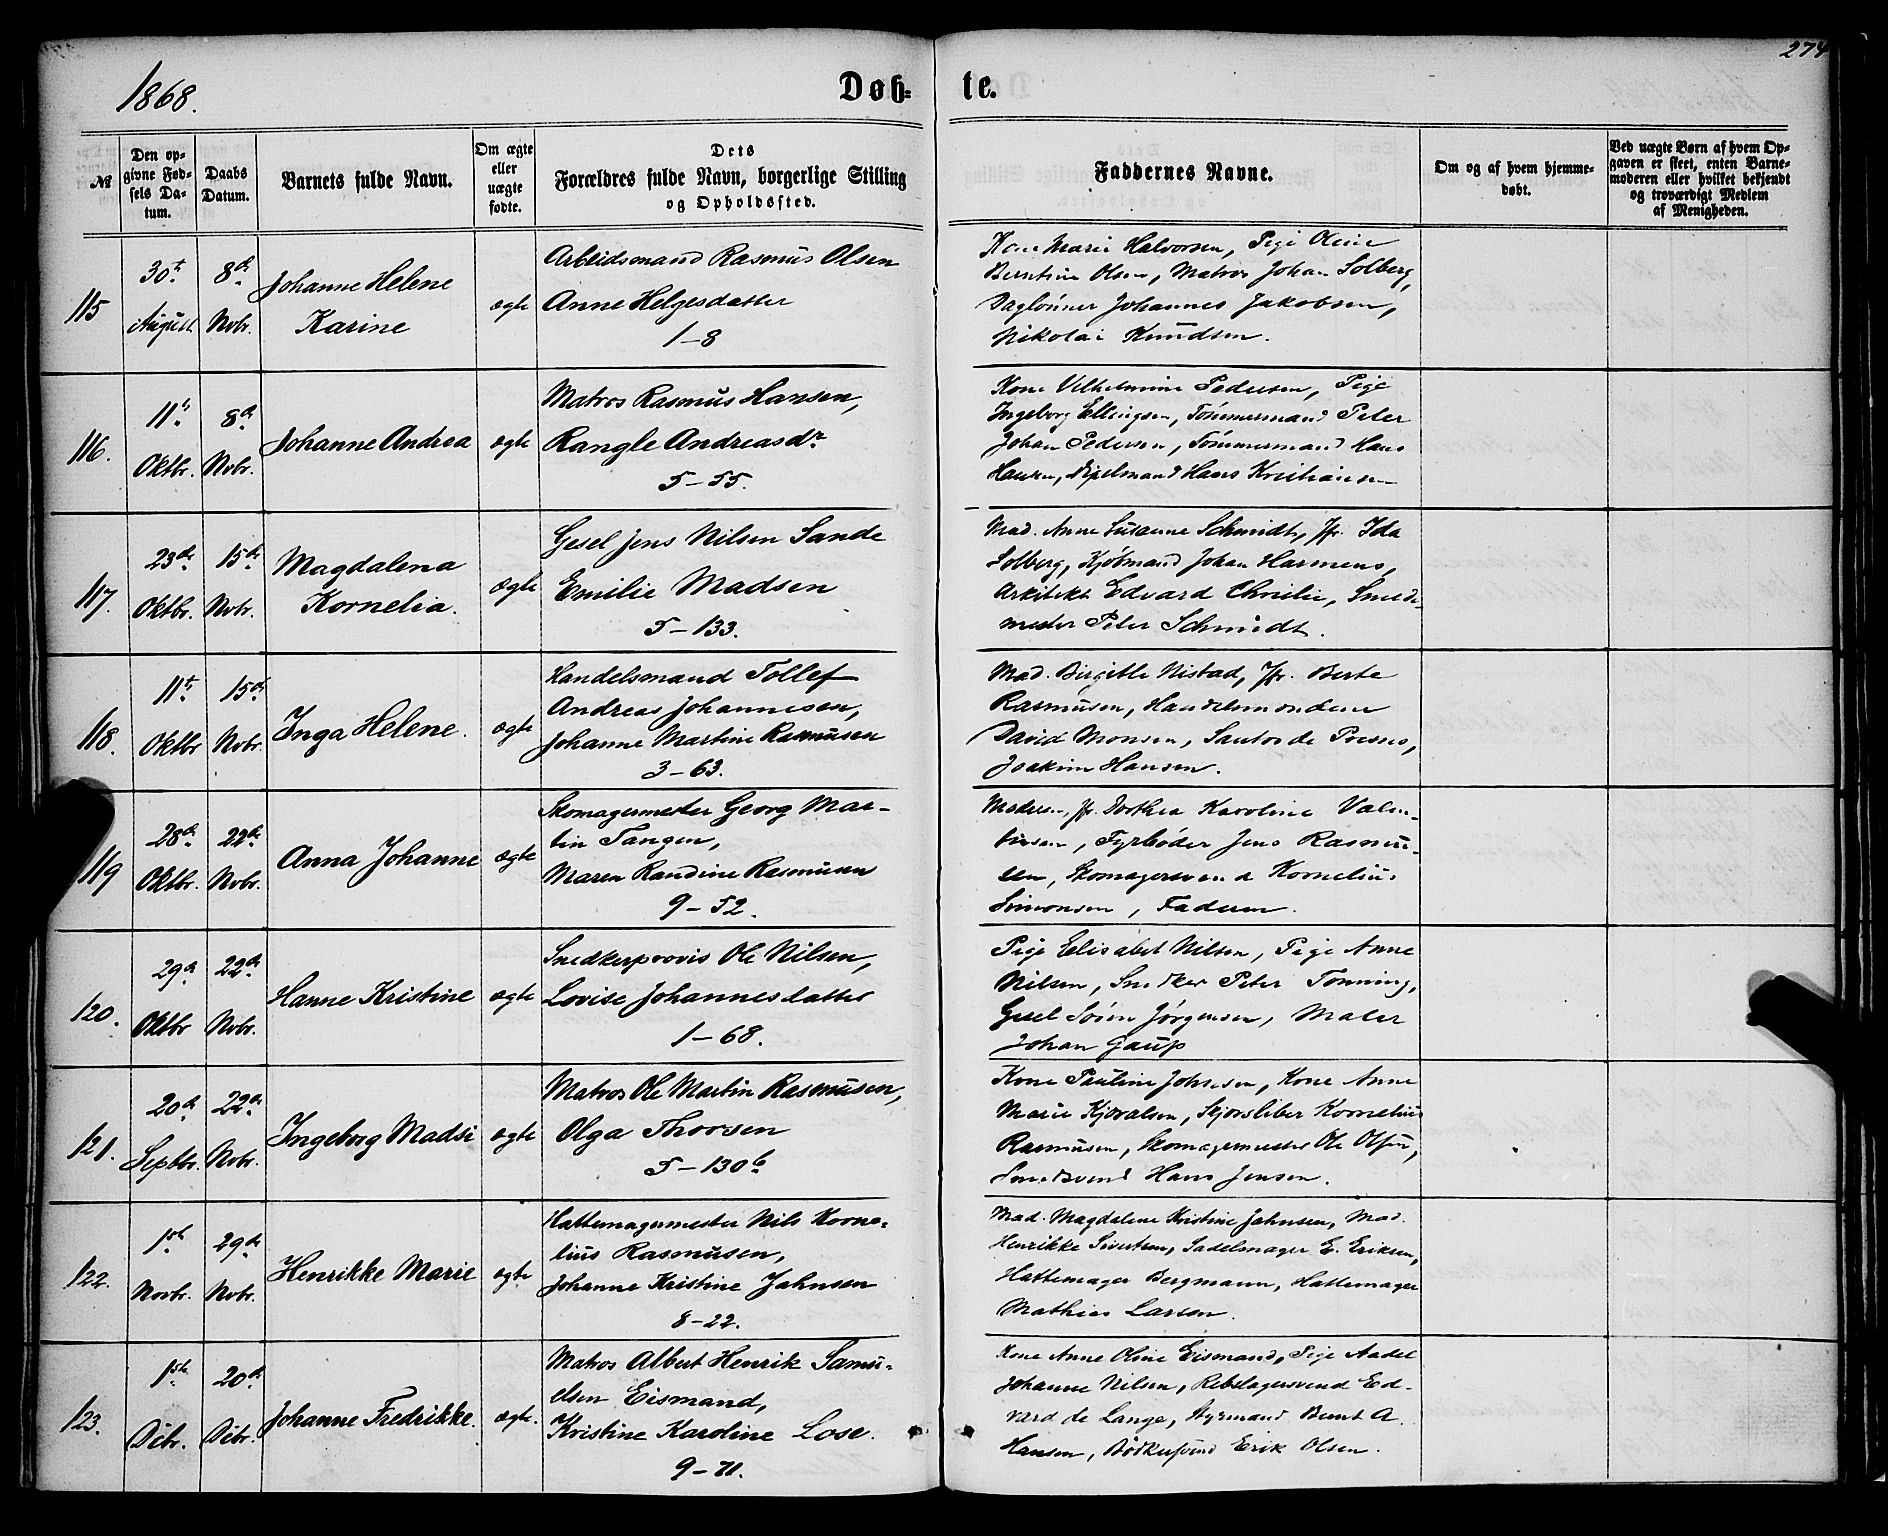 274
1868.
Døb-
te.
№
Den op-
givne Fød-
sels Da-
tum.
Daabs
Datum.
Barnets fulde Navn.
Om ægte
eller
uægte
fødte.
Dets
Forældres fulde Navn, borgerlige Stilling
og Opholdssted.
Faddernes Navne.
Om og af hvem hjemme-
døbt.
Ved uægte Børn af hvem Op-
gaven er skeet, enten Barne-
moderen eller hvilket bekjendt
og troværdigt Medlem
af Menigheden.
115
30te
August
8de
Novbr.
Johanne Helene
Karine
ægte
Arbeidsmand Rasmus Olsen
Anne Helgesdatter
1-8
Kone Marie Halvorsen, Pige Oline
Berntine Olsen, Matros Johan Solberg,
Daglønner Johannes Jakobsen,
Nikolai Knudsen.
116.
11te
Oktbr.
8de
Novbr.
Johanne Andrea
ægte
Matros Rasmus Hansen,
Rangle Andreasdr
5-55.
Kone Vilhelmine Pedersen, Pige
Ingeborg Ellingsen, Tømmermand Peter
Johan Pedersen, Tømmermand Hans
Hansen, Hans Kristiansen
117.
23de
Oktbr.
15de
Novbr.
Magdalena
Kornelia.
ægte
Gesel Jens Nilsen Sande
Emilie Madsen
5-133.
Mad. Anne Susanne Schmidt, Jfr. Ida
Solberg, Kjøbmand Johan Harmens,
Arkitekt Edvard Christie, Smede-
mester Peter Schmidt.
118.
11te
Oktbr
15de
Novbr.
Inga Helene.
ægte
Handelsmand Tollef
Andreas Johannesen,
Johanne Martine Rasmusen
3-63.
Mad. Birgitte Nistad, Jfr. Berte
Rasmusen, Handelsmændene
David Monsen, Santorde
Joakim Hansen.
119
28de
Oktbr.
22de
Novbr.
Anna Johanne
ægte
Skomagermester Georg Mar-
tin Tangen,
Maren Randine Rasmusen
9-52.
Moderen, Jfr. Dorthea Karoline Valen-
tinsen, Fyrbøder Jens Rasmu-
sen, Skomagersvend Kornelius
Simonsen, Faderen.
120.
29de
Oktbr
22de
Novbr.
Hanne Kristine
ægte
Snedkerprovis Ole Nilsen,
Lovise Johannesdatter
1-68.
Pige Elisabet Nilsen, Pige Anne
Nilsen, Snedker Peter Tønning,
Gesel Søren Jørgensen, Maler
Johan Gaup
121.
20de
Septbr.
22de
Novbr.
Ingeborg Madsi
ægte
Matros Ole Martin Rasmusen,
Olga Thorsen
5-130b
Kone Pauline Johnsen, Kone Anne
Marie Kjøvalsen, Kornelius
Rasmusen, Skomagermester Ole Olsen,
Smedsvend Hans Jensen.
122.
1ste
Novbr.
29de
Novbr.
Henrikke Marie
ægte
Hattemagermester Nils Korne-
lius Rasmusen,
Johanne Kristine Jahnsen
8-22.
Mad. Magdalene Kristine Jahnsen, Mad.
Henrikke Sivertsen, Sadelmager E. Eriksen,
Hattemager Bergmann, Hattemager
Mathias Larsen.
123.
1ste
Dcbr.
20de
Dcbr.
Johanne Fredrikke.
ægte.
Matros Albert Henrik Samu-
elsen Eismand,
Kristine Karoline Lose.
9-71.
Kone Anne Oline Eismand, Pige Aadel
Johanne Nilsen, Rebslagersvend Ed-
vard de Lange, Styrmand Bernt A.
Hansen, Bødkersvend Erik Olsen.